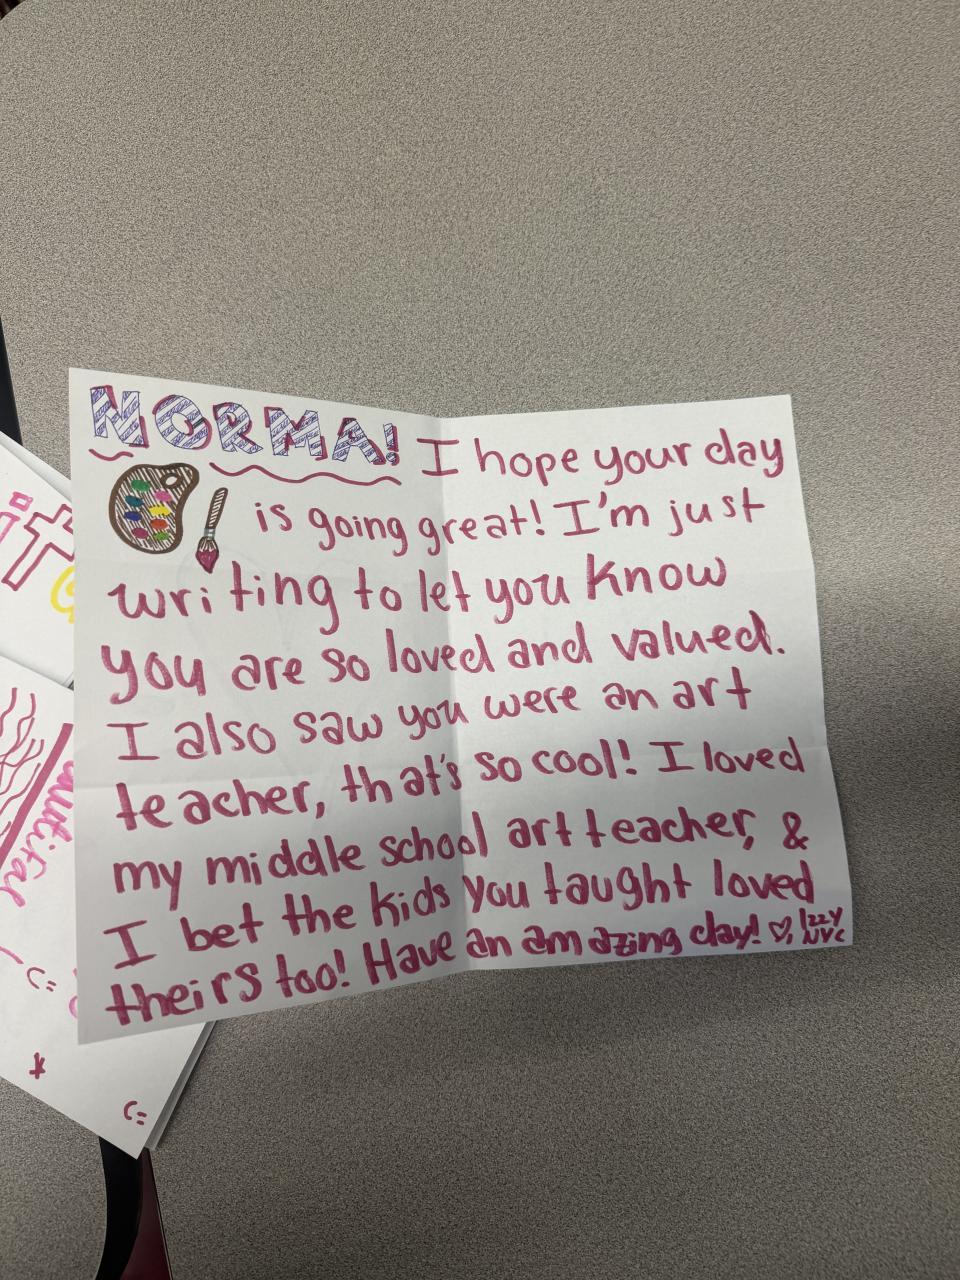 NORMA! I hope your day
is going great! I'm just
writing to let you know
you are so loved and valued.
I also saw you were an art
teacher, that's so cool! I loved
my middle school art teacher, &
I bet the kids you taught loved
theirs too! Have an amazing day! ♡, Izzy
NYC
it
C=
C=